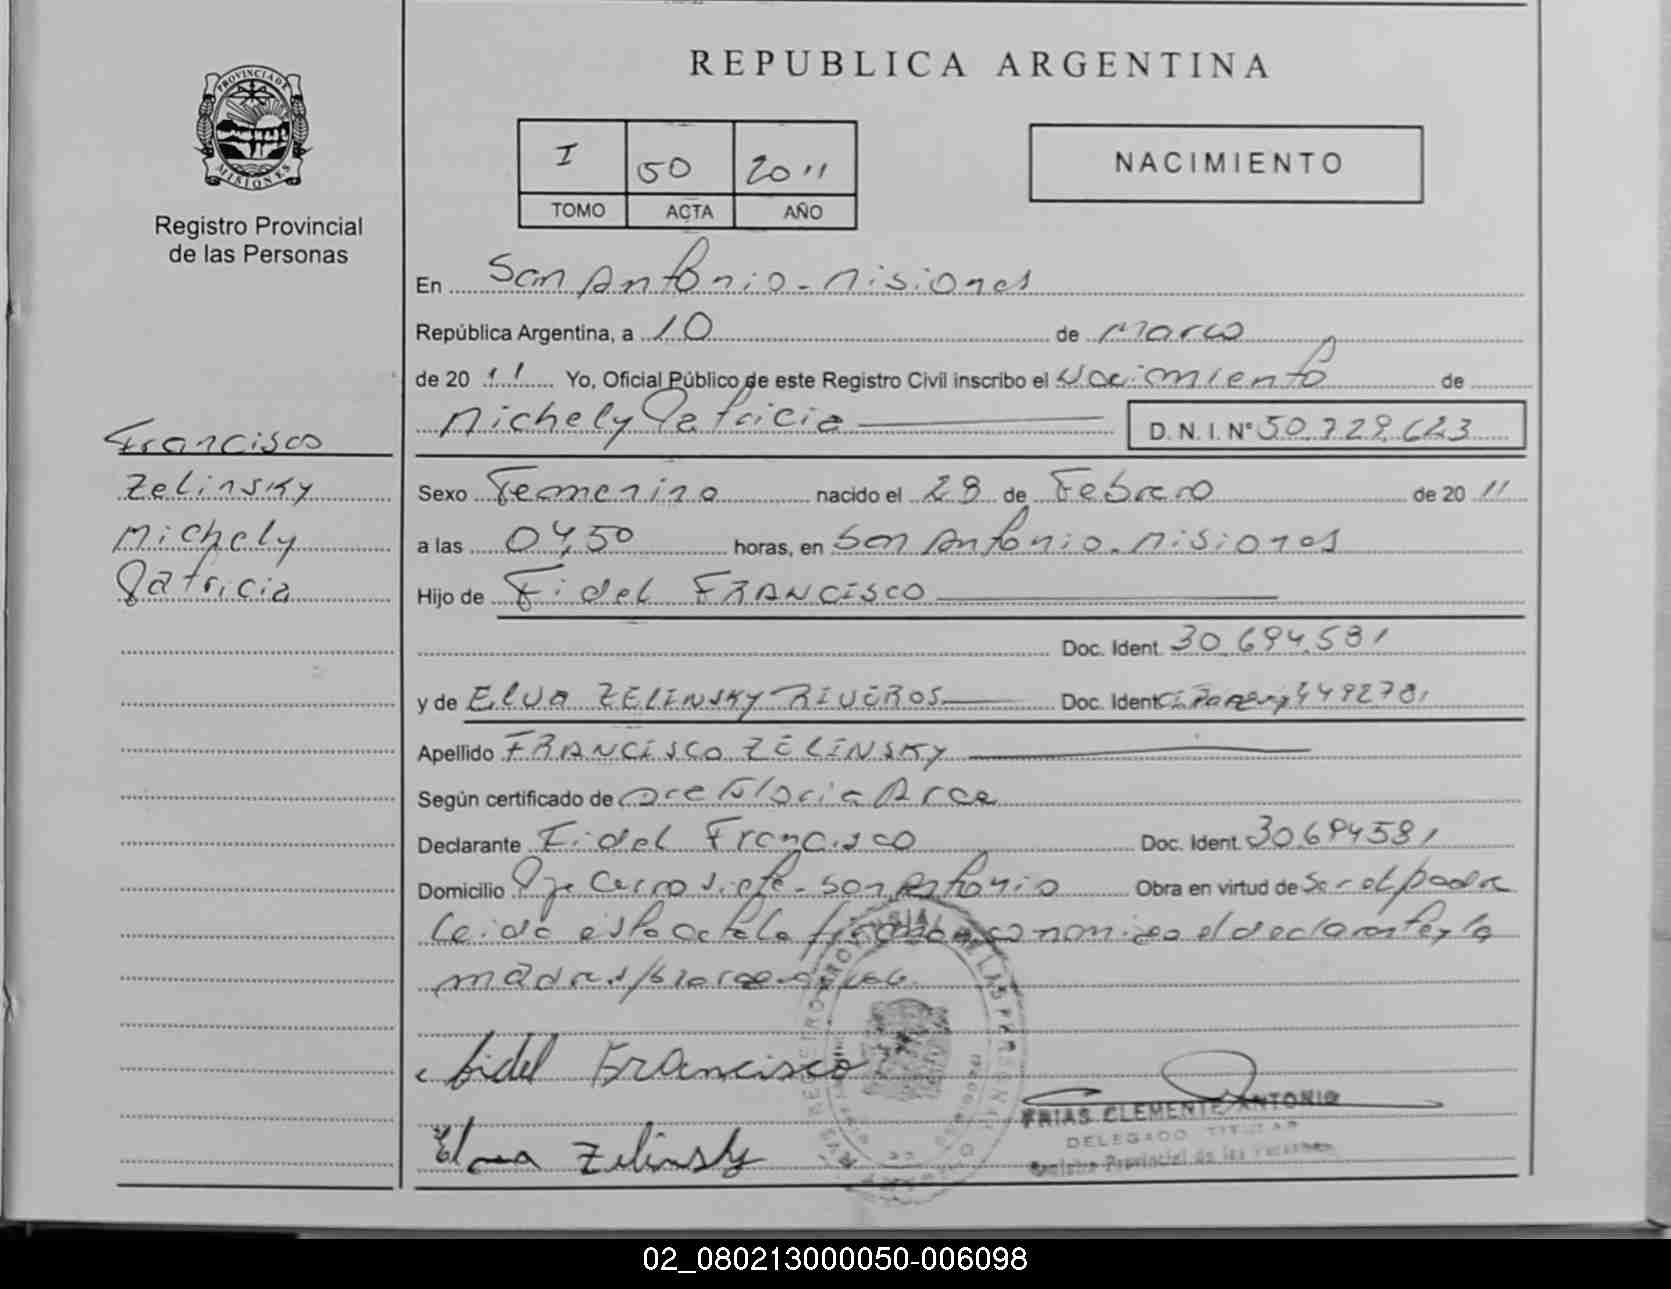 PROVINCIA DE
MISIONES
Registro Provincial
de las Personas
Francisco
Zelinsky
Michely
Patricia
REPUBLICA ARGENTINA
I 50 2011
TOMO ACTA AÑO
NACIMIENTO
En San Antonio - Misiones
República Argentina, a 10 de Marzo
de 20 11 Yo, Oficial Público de este Registro Civil inscribo el Nacimiento de
Michely Patricia D.N.I. N° 50.729.623
Sexo Femenino nacido el 28 de Febrero de 20 11
a las 04,50 horas, en San Antonio. Misiones
Hijo de Fidel FRANCISCO
Doc. Ident. 30.694.581
y de ELVA ZELINSKY RIVEROS Doc. Ident
Apellido FRANCISCO ZELINSKY
Según certificado de Arce
Declarante Fidel Francisco Doc. Ident. 30.694581
Domicilio Pje Cerro Siete - San Antonio Obra en virtud de Ser el padre
Leida esta acta la conmigo el declarante y la
madre
Fidel Francisco
Elva Zelinsky
FRIAS CLEMENTE ANTONIO
DELEGADO TITULAR
Registro Provincial de las Personas
02_080213000050-006098